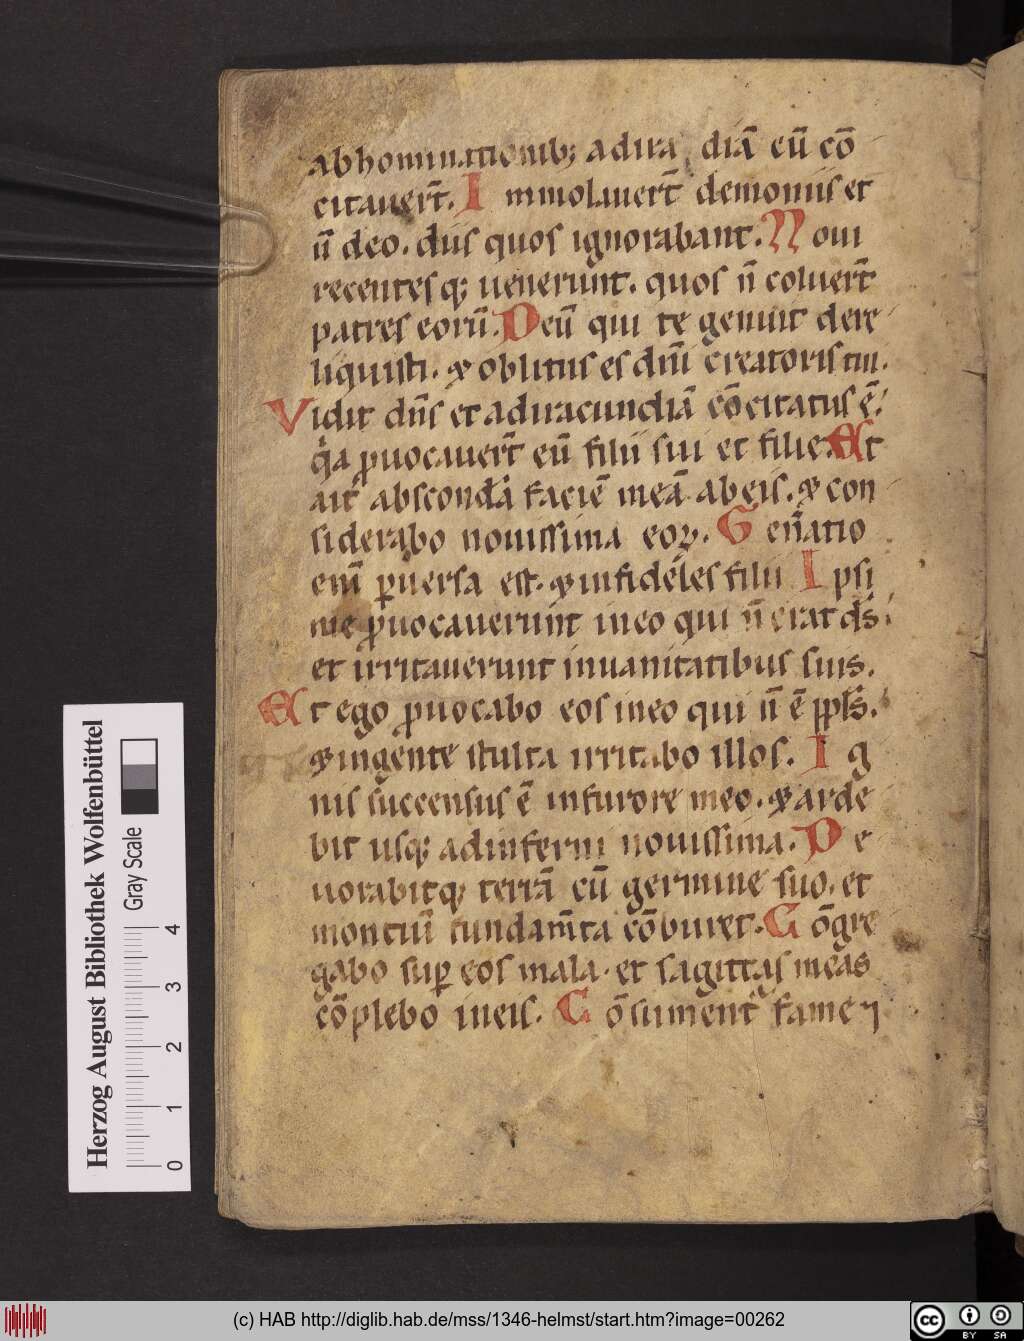 abhominationib; adira diā eū cō
citauert̄. I mmolauert̄ demoniis et
n̄ deo. diis quos ignorabant. N oui
recentesq; uenerunt. quos n̄ coluert̄
patres eorū. Deū qui te genuit dere
liquisti. & oblitus es dn̄i creatoris tui.
Vidit dn̄s et adiracundiā cōcitatus ē.
q̇a ꝓuocauert̄ eū filii sui et filie. Et
ait absconda̅ faciē meā abeis. & con
siderabo nouissima eoꝝ. G en̄atio
eni̅ ꝑuersa est. & infideles filii I psi
me ꝓuocauerunt ineo qui n̄ erat ds̄.
et irritauerunt inuanitatibus suis.
Et ego ꝓuocabo eos ineo qui n̄ ē ppls̄.
& ingente stulta irritabo illos. I g
nis succensus ē infurore meo. & arde
bit usq; adinferni nouissima. D e
uorabitq; terrā cū germine suo. et
montiū fundam̄ta cōburet. C ōgre
gabo suꝑ eos mala. et sagittas meas
cōplebo ineis. C ōsument̄ fame ⁊
Herzog August Bibliothek Wolfenbüttel
Gray Scale
0 1 2 3 4
(c) HAB http://diglib.hab.de/mss/1346-helmst/start.htm?image=00262
cc BY SA